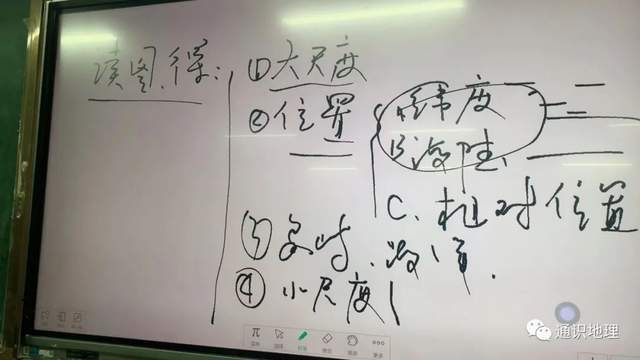 读图,得:
①大尺度
②位置
纬度
B海陆
C.相对位置
③
④小尺度
通识地理